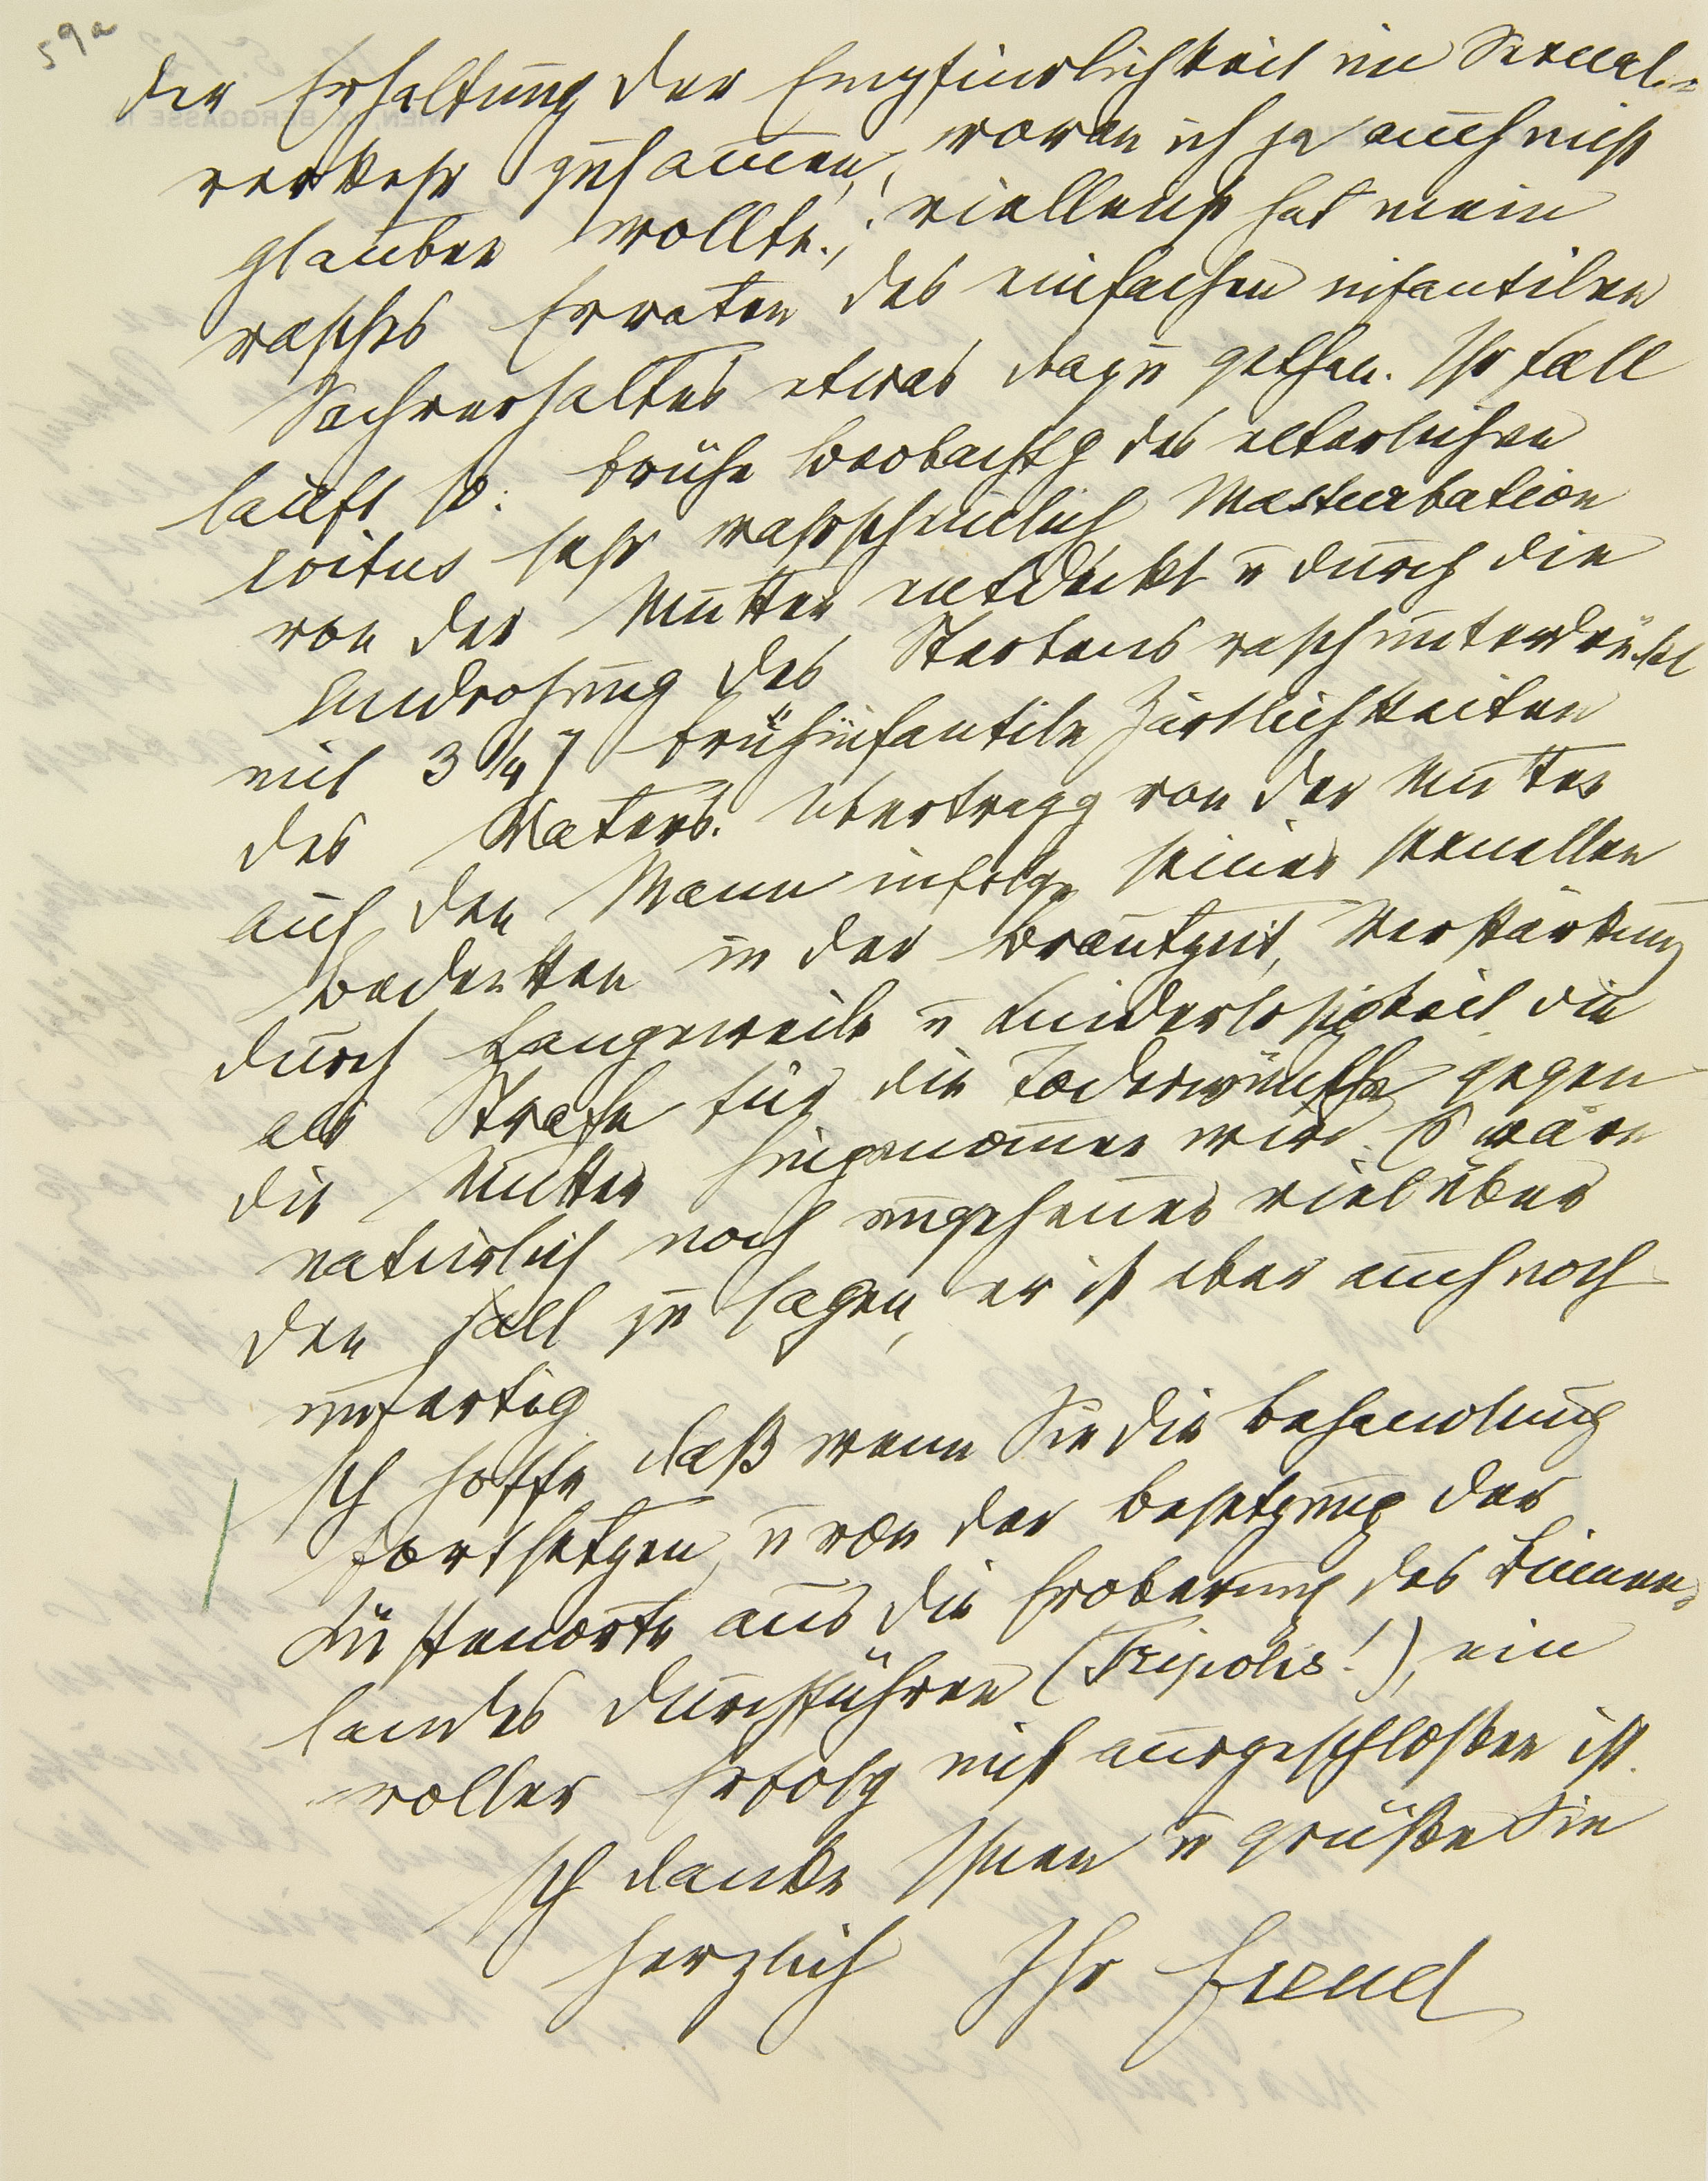 59a
der Erhaltung der Empfindlichkeit im Sexual-
verkehr zusammen, woran ich ja auch nicht
glauben wollte; vielleicht hat mein
rasches Erraten des einfachen infantilen
Sachverhaltes etwas dazu gethan. Ihr Fall
läuft so: frühe Beobachtg des elterlichen
Coitus sehr wahrscheinlich Masturbation
von der Mutter entdeckt u durch die
Androhung des Sterbens rasch unterdrückt
mit 3 1/4 J frühinfantile Zärtlichkeiten
des Vaters. Übertragg von der Mutter
auf den Mann infolge seiner sexuellen
in der Brautzeit, Verstärkung
durch Langeweile u Kinderlosigkeit die
als Strafe für die Todeswünsche gegen
die Mutter hingenommen wird. Es wäre
natürlich noch ungeheuer viel über
den Fall zu sagen, er ist aber auch noch
unfertig
Ich hoffe daß wenn Sie die Behandlung
fortsetzen, u von der Besetzung der
Küstenorte aus die Eroberung des Binnen-
landes durchführen (Tripolis!), ein
voller Erfolg nicht ausgeschloßen ist.
Ich danke Ihnen u grüße Sie
herzlich Ihr Freud